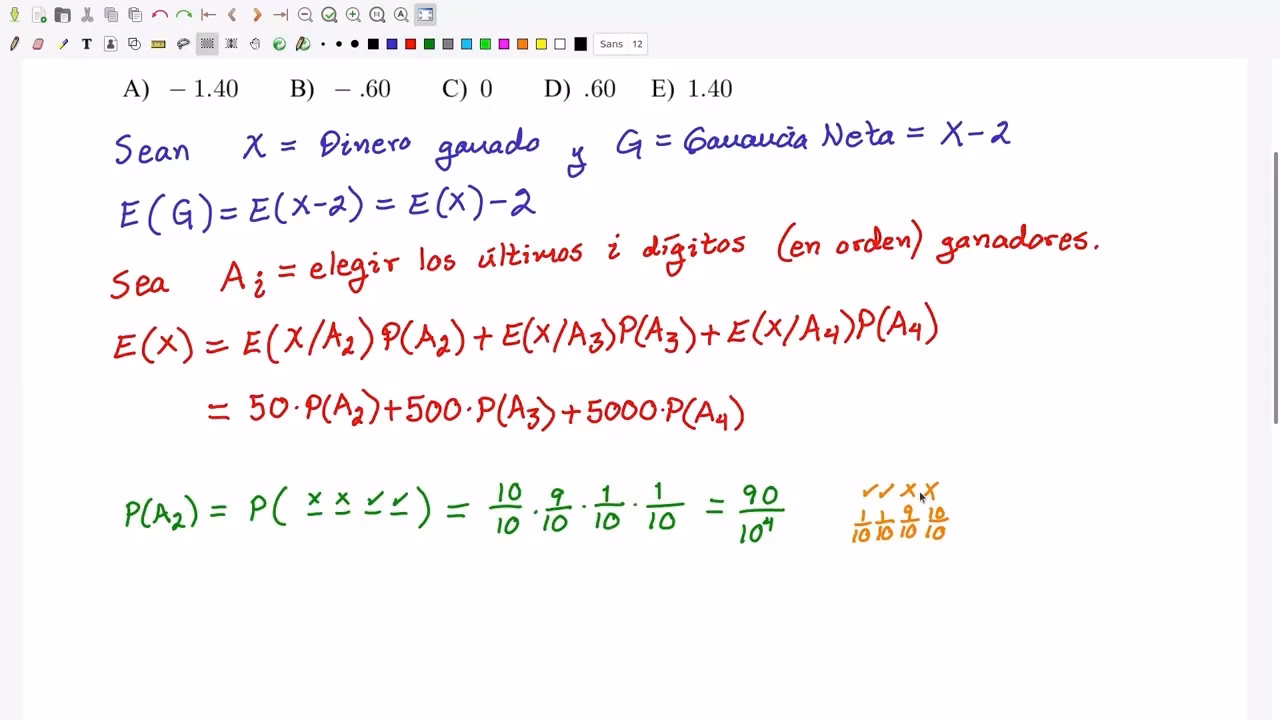 Sans 12
A) − 1.40 B) − .60 C) 0 D) .60 E) 1.40
Sean X = Dinero ganado y G = Ganancia Neta = X−2
E(G) = E(X−2) = E(X)−2
Sea A_i = elegir los últimos i dígitos (en orden) ganadores.
E(X) = E(X/A_2) P(A_2) + E(X/A_3) P(A_3) + E(X/A_4) P(A_4)
= 50·P(A_2) + 500·P(A_3) + 5000·P(A_4)
P(A_2) = P( x x ✓ ✓ ) = 10/10 · 9/10 · 1/10 · 1/10 = 90/10^4
✓ ✓ x x
1/10 1/10 9/10 10/10